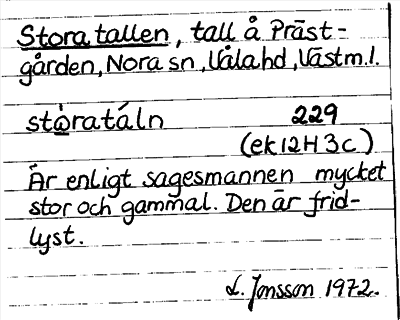 Stora tallen, tall å Präst-
gården, Nora sn, Våla hd, Västm. l.
stòratáln 229
(ek 12H 3c)
Är enligt sagesmannen mycket
stor och gammal. Den är frid-
lyst.
L. Jonsson 1972.